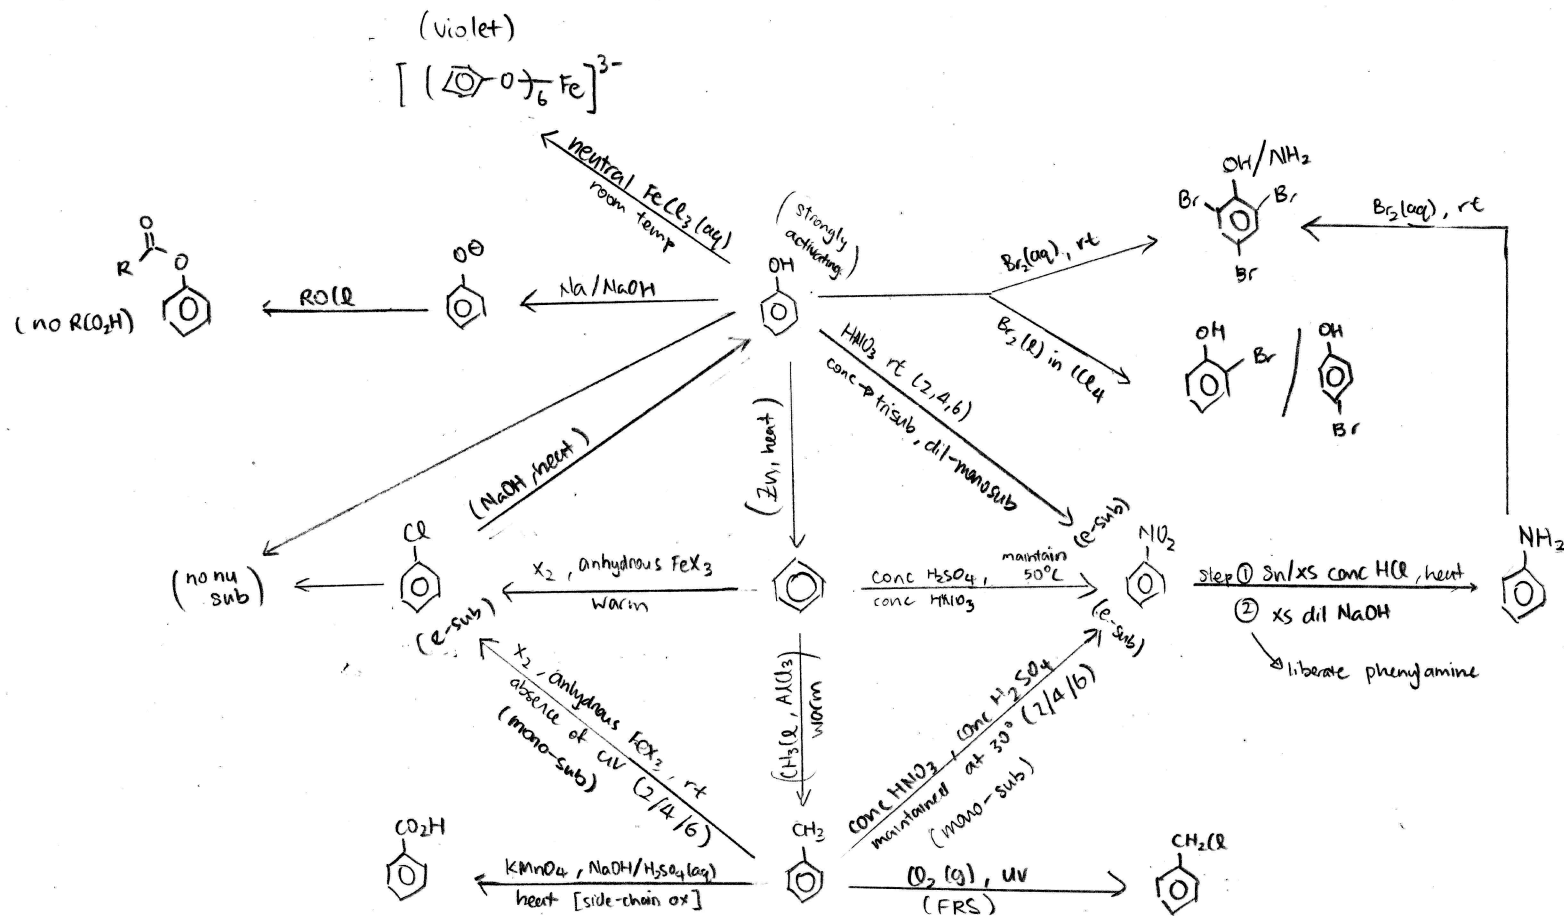 (violet)
[(⌬-O)6-Fe]3-
neutral FeCl3(aq)
room temp
(strongly
activating)
OH
OH/NH2
Br
Br
Br
Br2(aq), rt
Br2(aq), rt
Br2(l) in CCl4
OH
Br
OH
Br
O
R
O
(no RCO2H)
ROCl
O⊖
Na/NaOH
HNO3 rt (2,4,6)
conc → trisub, dil-monosub
(Zn, heat)
(NaOH, heat)
(no nu
sub)
Cl
(e-sub)
X2, anhydrous FeX3
warm
conc H2SO4, maintain
conc HNO3 50°C
(e-sub)
NO2
(e-sub)
step ① Sn/xs conc HCl, heat
② xs dil NaOH
liberate phenylamine
NH2
X2, anhydrous FeX3, rt
absence of UV (2/4/6)
(mono-sub)
(CH3Cl, AlCl3)
warm
conc HNO3, conc H2SO4
maintained at 30° (2/4/6)
(mono-sub)
CO2H
KMnO4, NaOH/H2SO4(aq)
heat [side-chain ox]
CH3
Cl2(g), UV
(FRS)
CH2Cl